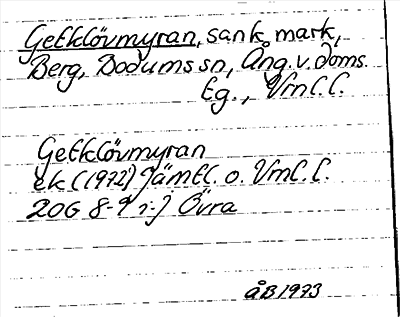 Getklövmyran, sank mark,
Berg, Dodums sn, Ång. v. doms.
tg., Vrnl. l.
Getklövmyran
ek (1972) Jämtl. o. Vrnl. l.
20G 8-9 i-j Övra
ÅB 1973